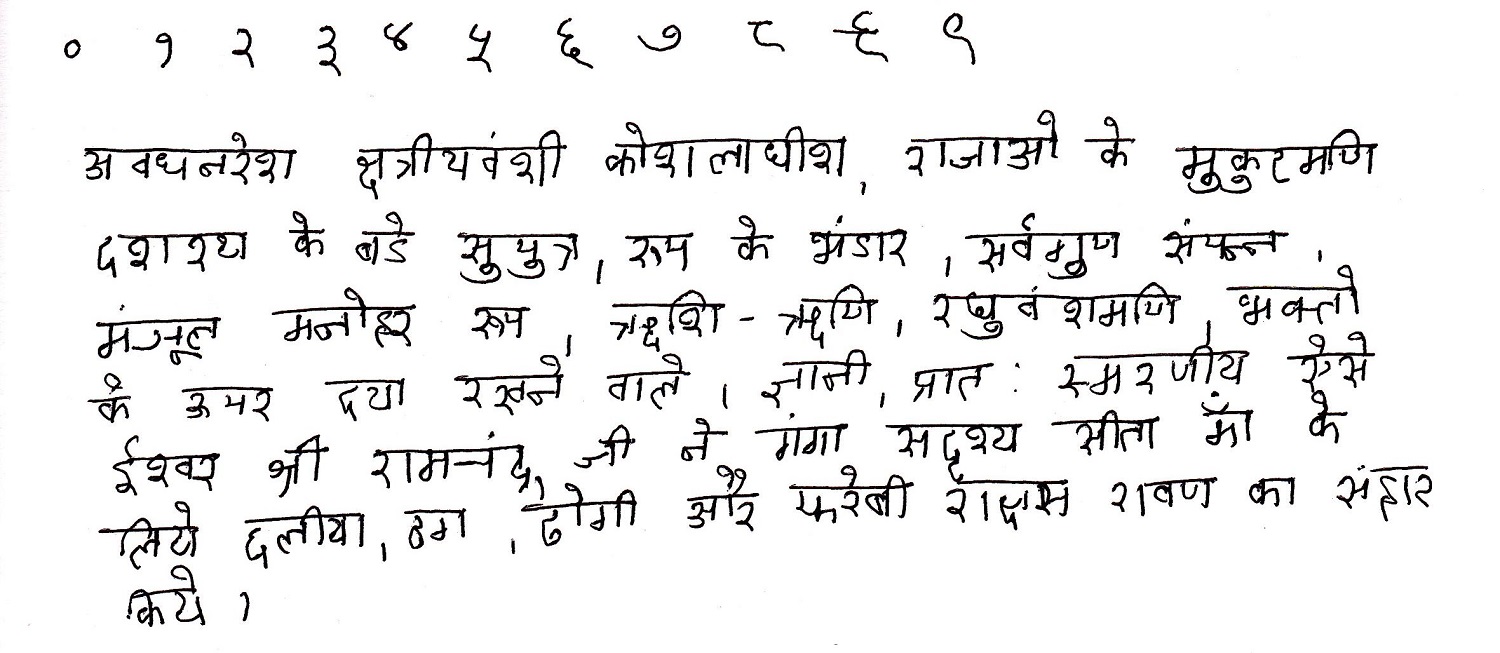 ० १ २ ३ ४ ५ ६ ७ ८ ९ ९
अवधनरेश क्षत्रीयवंशी कोशलाधीश, राजाओ के मुकुटमणि
दशरथ के बडे सुपुत्र, रूप के भंडार, सर्वगुण संपन्न,
मंजूल मनोहर रूप, ऋषि - ऋणि, रघुवंशमणि, भक्तो
के ऊपर दया रखने वाले, ज्ञानी, प्रात: स्मरणीय ऐसे
ईश्वर श्री रामचंद्र जी ने गंगा सदृश्य सीता माँ के
लिये छलीया, ठग, ढोगी और फरेबी राक्षस रावण का संहार
किये।